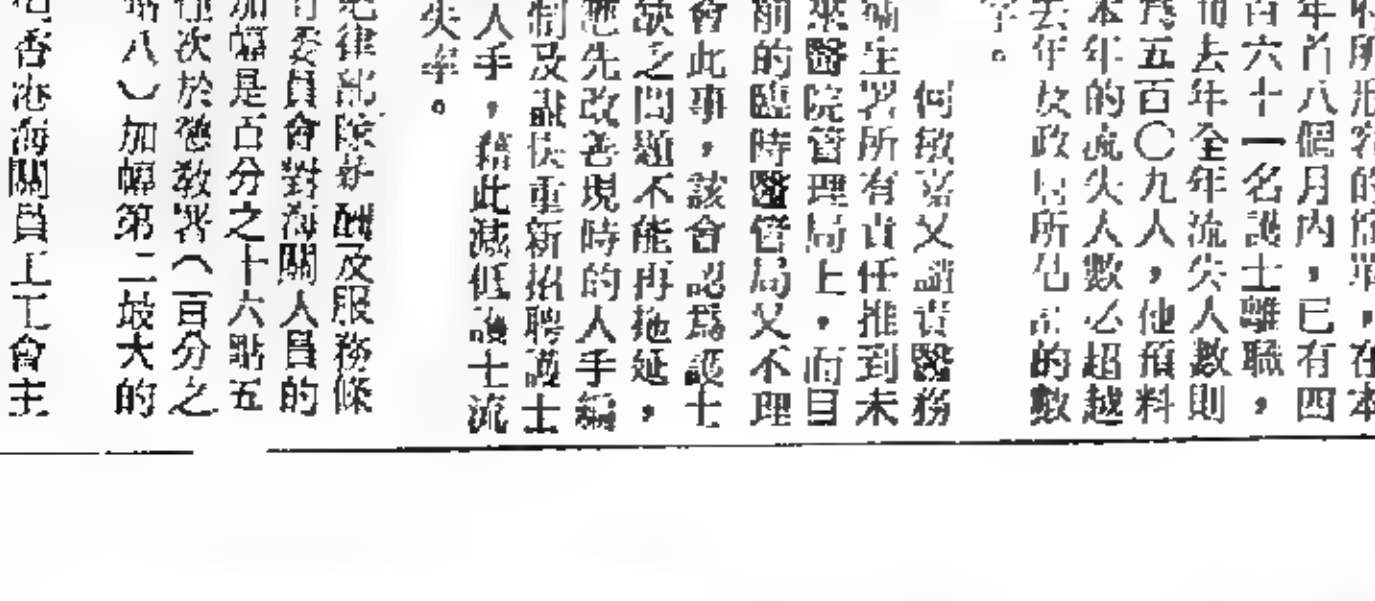 所派客的信罪，在本
年首八個月內，已有四
百六十一名護士離職，
而去年全年流失人數則
爲五百〇九人，他預料
本年的流失人數必超越
去年及政局所估計的數
字。
何敏嘉又譴責醫務
衞生署所有責任推到未
來醫院管理局上，而目
前的臨時醫管局又不理
會此事，該會認爲護士
缺之問題不能再拖延，
應先改善現時的人手編
制及盡快重新招聘護士
人手，藉此減低護士流
失率。
紀律部隊薪酬及服務條
委員會對海關人員的
加幅是百分之十六點五
僅次於懲教署（百分之
點八）加幅第二最大的
香港海關員工工會主